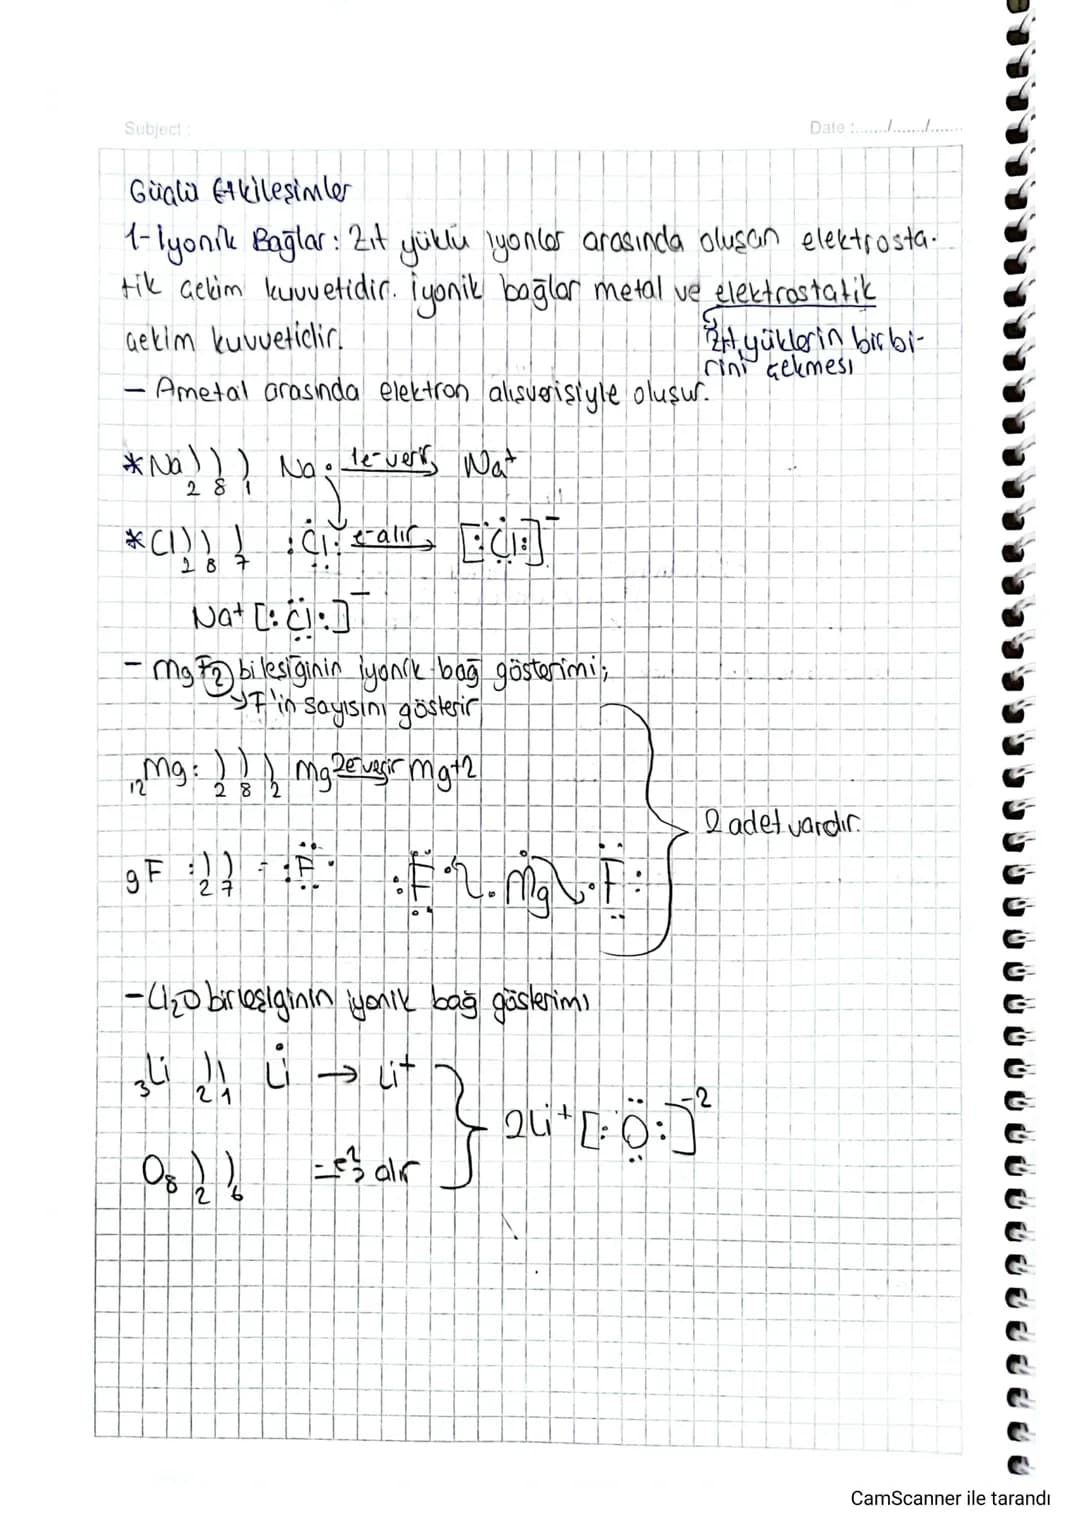 Subject :
Date : ......./......./.......
Güçlü Etkileşimler
1-İyonik Bağlar : Zıt yüklü iyonlar arasında oluşan elektrosta-
tik çekim kuvvetidir. İyonik bağlar metal ve elektrostatik
çekim kuvvetidir.
Zıt yüklerin birbi-
rini çekmesi
- Ametal arasında elektron alışverişiyle oluşur.
*Na ) ) ) Na . 1e- verir Na+
2 8 1
*Cl ) ) ) :Cl: e- alır [:Cl:]-
2 8 7
Na+ [:Cl:]-
- MgF2 bileşiğinin iyonik bağ gösterimi;
F'in sayısını gösterir
12Mg: ) ) ) Mg 2e verir Mg+2
2 8 2
2 adet vardır.
9F : ) ) = :F. :F. .Mg. .F:
2 7
- Li2O birleşiğinin iyonik bağ gösterimi
3Li ) ) Li → Li+
2 1
2Li+ [:O:]-2
O8 ) ) alır
2 6
CamScanner ile tarandı